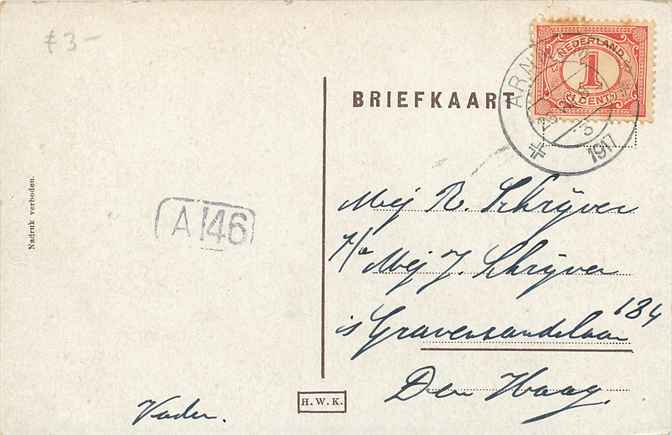 £3-
BRIEFKAART
NEDERLAND
1
CENT
ARN
1917
Nadruk verboden.
A 146
Mej R. Schrijver
p/a Mej J. Schrijver
's Gravesandelaan 134
Den Haag.
Vader.
H.W.K.